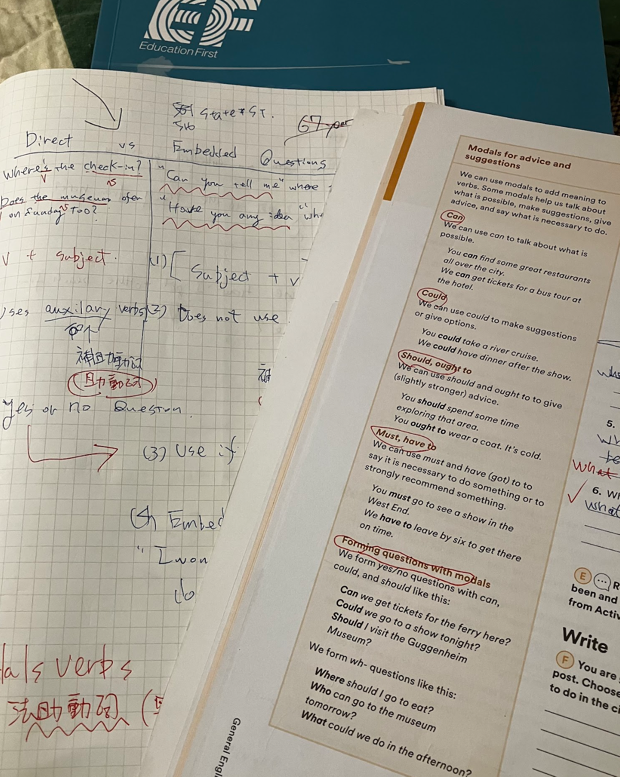 EF
Education First
Direct vs Embedded Questions
Where's the check-in?
v
Does the museum open
on Sunday TOO?
"Can you tell me" where
"Have you any idea"
V + Subject.
(1) [Subject + v
uses auxilary verbs
(助動詞)
Yes or no Question.
Does not use
(3) Use if
(4) Embed
"I won
verbs
法助動詞
Modals for advice and
suggestions
We can use modals to add meaning to
verbs. Some modals help us talk about
what is possible, make suggestions, give
advice, and say what is necessary to do.
Can
We can use can to talk about what is
possible.
You can find some great restaurants
all over the city.
We can get tickets for a bus tour at
the hotel.
Could
We can use could to make suggestions
or give options.
You could take a river cruise.
We could have dinner after the show.
Should, ought to
We can use should and ought to to give
(slightly stronger) advice.
You should spend some time
exploring that area.
You ought to wear a coat. It's cold.
Must, have to
We can use must and have (got) to to
say it is necessary to do something or to
strongly recommend something.
You must go to see a show in the
West End.
We have to leave by six to get there
on time.
Forming questions with modals
We form yes/no questions with can,
could, and should like this:
Can we get tickets for the ferry here?
Could we go to a show tonight?
Should I visit the Guggenheim
Museum?
We form wh- questions like this:
Where should I go to eat?
Who can go to the museum
tomorrow?
What could we do in the afternoon?
General Engl
5.
What
6. Wh
What
E
been and
from Activ
Write
F You are
post. Choose
to do in the ci